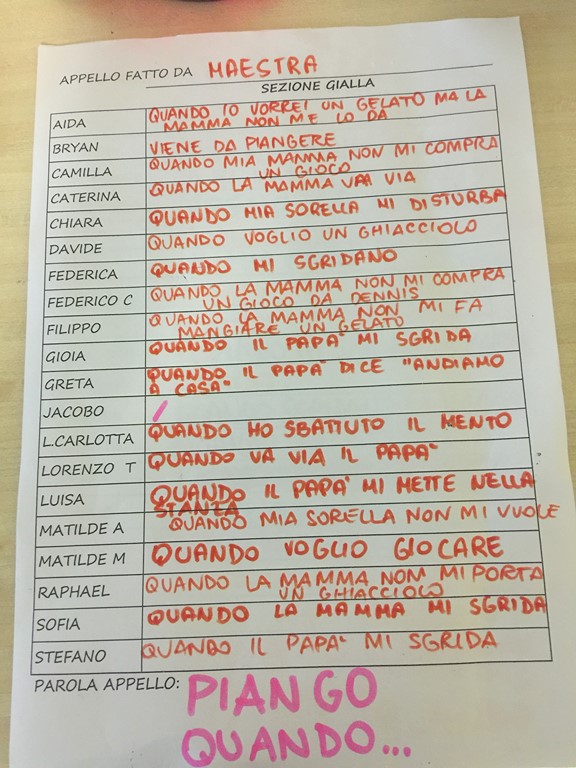 APPELLO FATTO DA MAESTRA
SEZIONE GIALLA
AIDA QUANDO IO VORREI UN GELATO MA LA
MAMMA NON ME LO DA
BRYAN VIENE DA PIANGERE
CAMILLA QUANDO MIA MAMMA NON MI COMPRA
UN GIOCO
CATERINA QUANDO LA MAMMA VA VIA
CHIARA QUANDO MIA SORELLA MI DISTURBA
DAVIDE QUANDO VOGLIO UN GHIACCIOLO
FEDERICA QUANDO MI SGRIDANO
FEDERICO C QUANDO LA MAMMA NON MI COMPRA
UN GIOCO DA DENNIS
FILIPPO QUANDO LA MAMMA NON MI FA
MANGIARE UN GELATO
GIOIA QUANDO IL PAPA' MI SGRIDA
GRETA QUANDO IL PAPA' DICE "ANDIAMO
A CASA"
JACOBO /
L.CARLOTTA QUANDO HO SBATTUTO IL MENTO
LORENZO T QUANDO VA VIA IL PAPA'
LUISA QUANDO IL PAPA' MI METTE NELLA
STANZA
MATILDE A QUANDO MIA SORELLA NON MI VUOLE
MATILDE M QUANDO VOGLIO GIOCARE
RAPHAEL QUANDO LA MAMMA NON MI PORTA
UN GHIACCIOLO
SOFIA QUANDO LA MAMMA MI SGRIDA
STEFANO QUANDO IL PAPA' MI SGRIDA
PAROLA APPELLO: PIANGO
QUANDO...